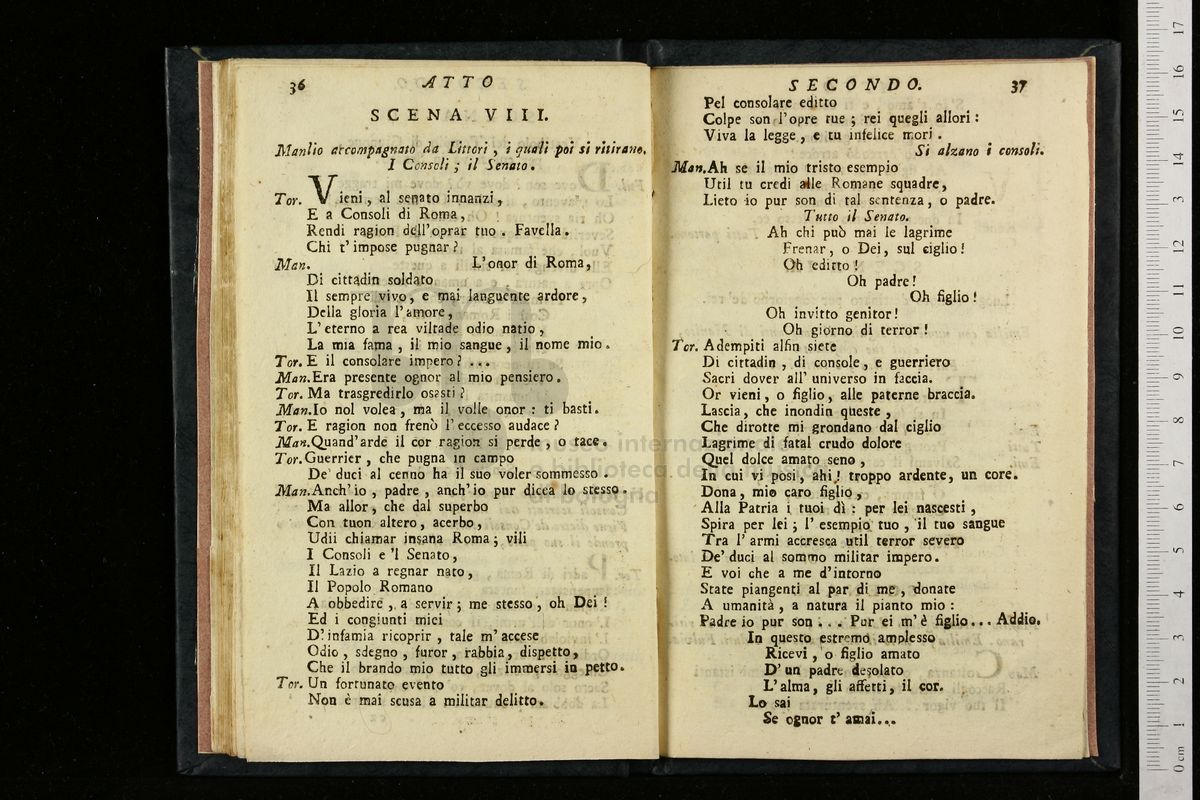 36 ATTO
SCENA VIII.
Manlio accompagnato da Littori, i quali poi si ritirano.
I Consoli; il Senato.
Tor. Vieni, al senato innanzi,
E a Consoli di Roma,
Rendi ragion dell'oprar tuo. Favella.
Chi t'impose pugnar?
Man. L'onor di Roma,
Di cittadin soldato
Il sempre vivo, e mai languente ardore,
Della gloria l'amore,
L'eterno a rea viltade odio natio,
La mia fama, il mio sangue, il nome mio.
Tor. E il consolare impero? ...
Man. Era presente ognor al mio pensiero.
Tor. Ma trasgredirlo osasti?
Man. Io nol volea, ma il volle onor: ti basti.
Tor. E ragion non frenò l'eccesso audace?
Man. Quand'arde il cor ragion si perde, o tace.
Tor. Guerrier, che pugna in campo
De' duci al cenno ha il suo voler sommesso.
Man. Anch'io, padre, anch'io pur dicea lo stesso.
Ma allor, che dal superbo
Con tuon altero, acerbo,
Udii chiamar insana Roma; vili
I Consoli e'l Senato,
Il Lazio a regnar nato,
Il Popolo Romano
A obbedire, a servir; me stesso, oh Dei!
Ed i congiunti miei
D'infamia ricoprir, tale m'accese
Odio, sdegno, furor, rabbia, dispetto,
Che il brando mio tutto gli immersi in petto.
Tor. Un fortunato evento
Non è mai scusa a militar delitto.
SECONDO. 37
Pel consolare editto
Colpe son l'opre tue; rei quegli allori:
Viva la legge, e tu infelice mori.
Si alzano i consoli.
Man. Ah se il mio tristo esempio
Util tu credi alle Romane squadre,
Lieto io pur son di tal sentenza, o padre.
Tutto il Senato.
Ah chi può mai le lagrime
Frenar, o Dei, sul ciglio!
Oh editto!
Oh padre!
Oh figlio!
Oh invitto genitor!
Oh giorno di terror!
Tor. Adempiti alfin siete
Di cittadin, di console, e guerriero
Sacri dover all'universo in faccia.
Or vieni, o figlio, alle paterne braccia.
Lascia, che inondin queste,
Che dirotte mi grondano dal ciglio
Lagrime di fatal crudo dolore
Quel dolce amato seno,
In cui vi posi, ahi! troppo ardente, un core.
Dona, mio caro figlio,
Alla Patria i tuoi dì: per lei nascesti,
Spira per lei; l'esempio tuo, il tuo sangue
Tra l'armi accresca util terror severo
De' duci al sommo militar impero.
E voi che a me d'intorno
State piangenti al par di me, donate
A umanità, a natura il pianto mio:
Padre io pur son... Pur ei m'è figlio... Addio.
In questo estremo amplesso
Ricevi, o figlio amato
D'un padre desolato
L'alma, gli affetti, il cor.
Lo sai
Se ognor t'amai...